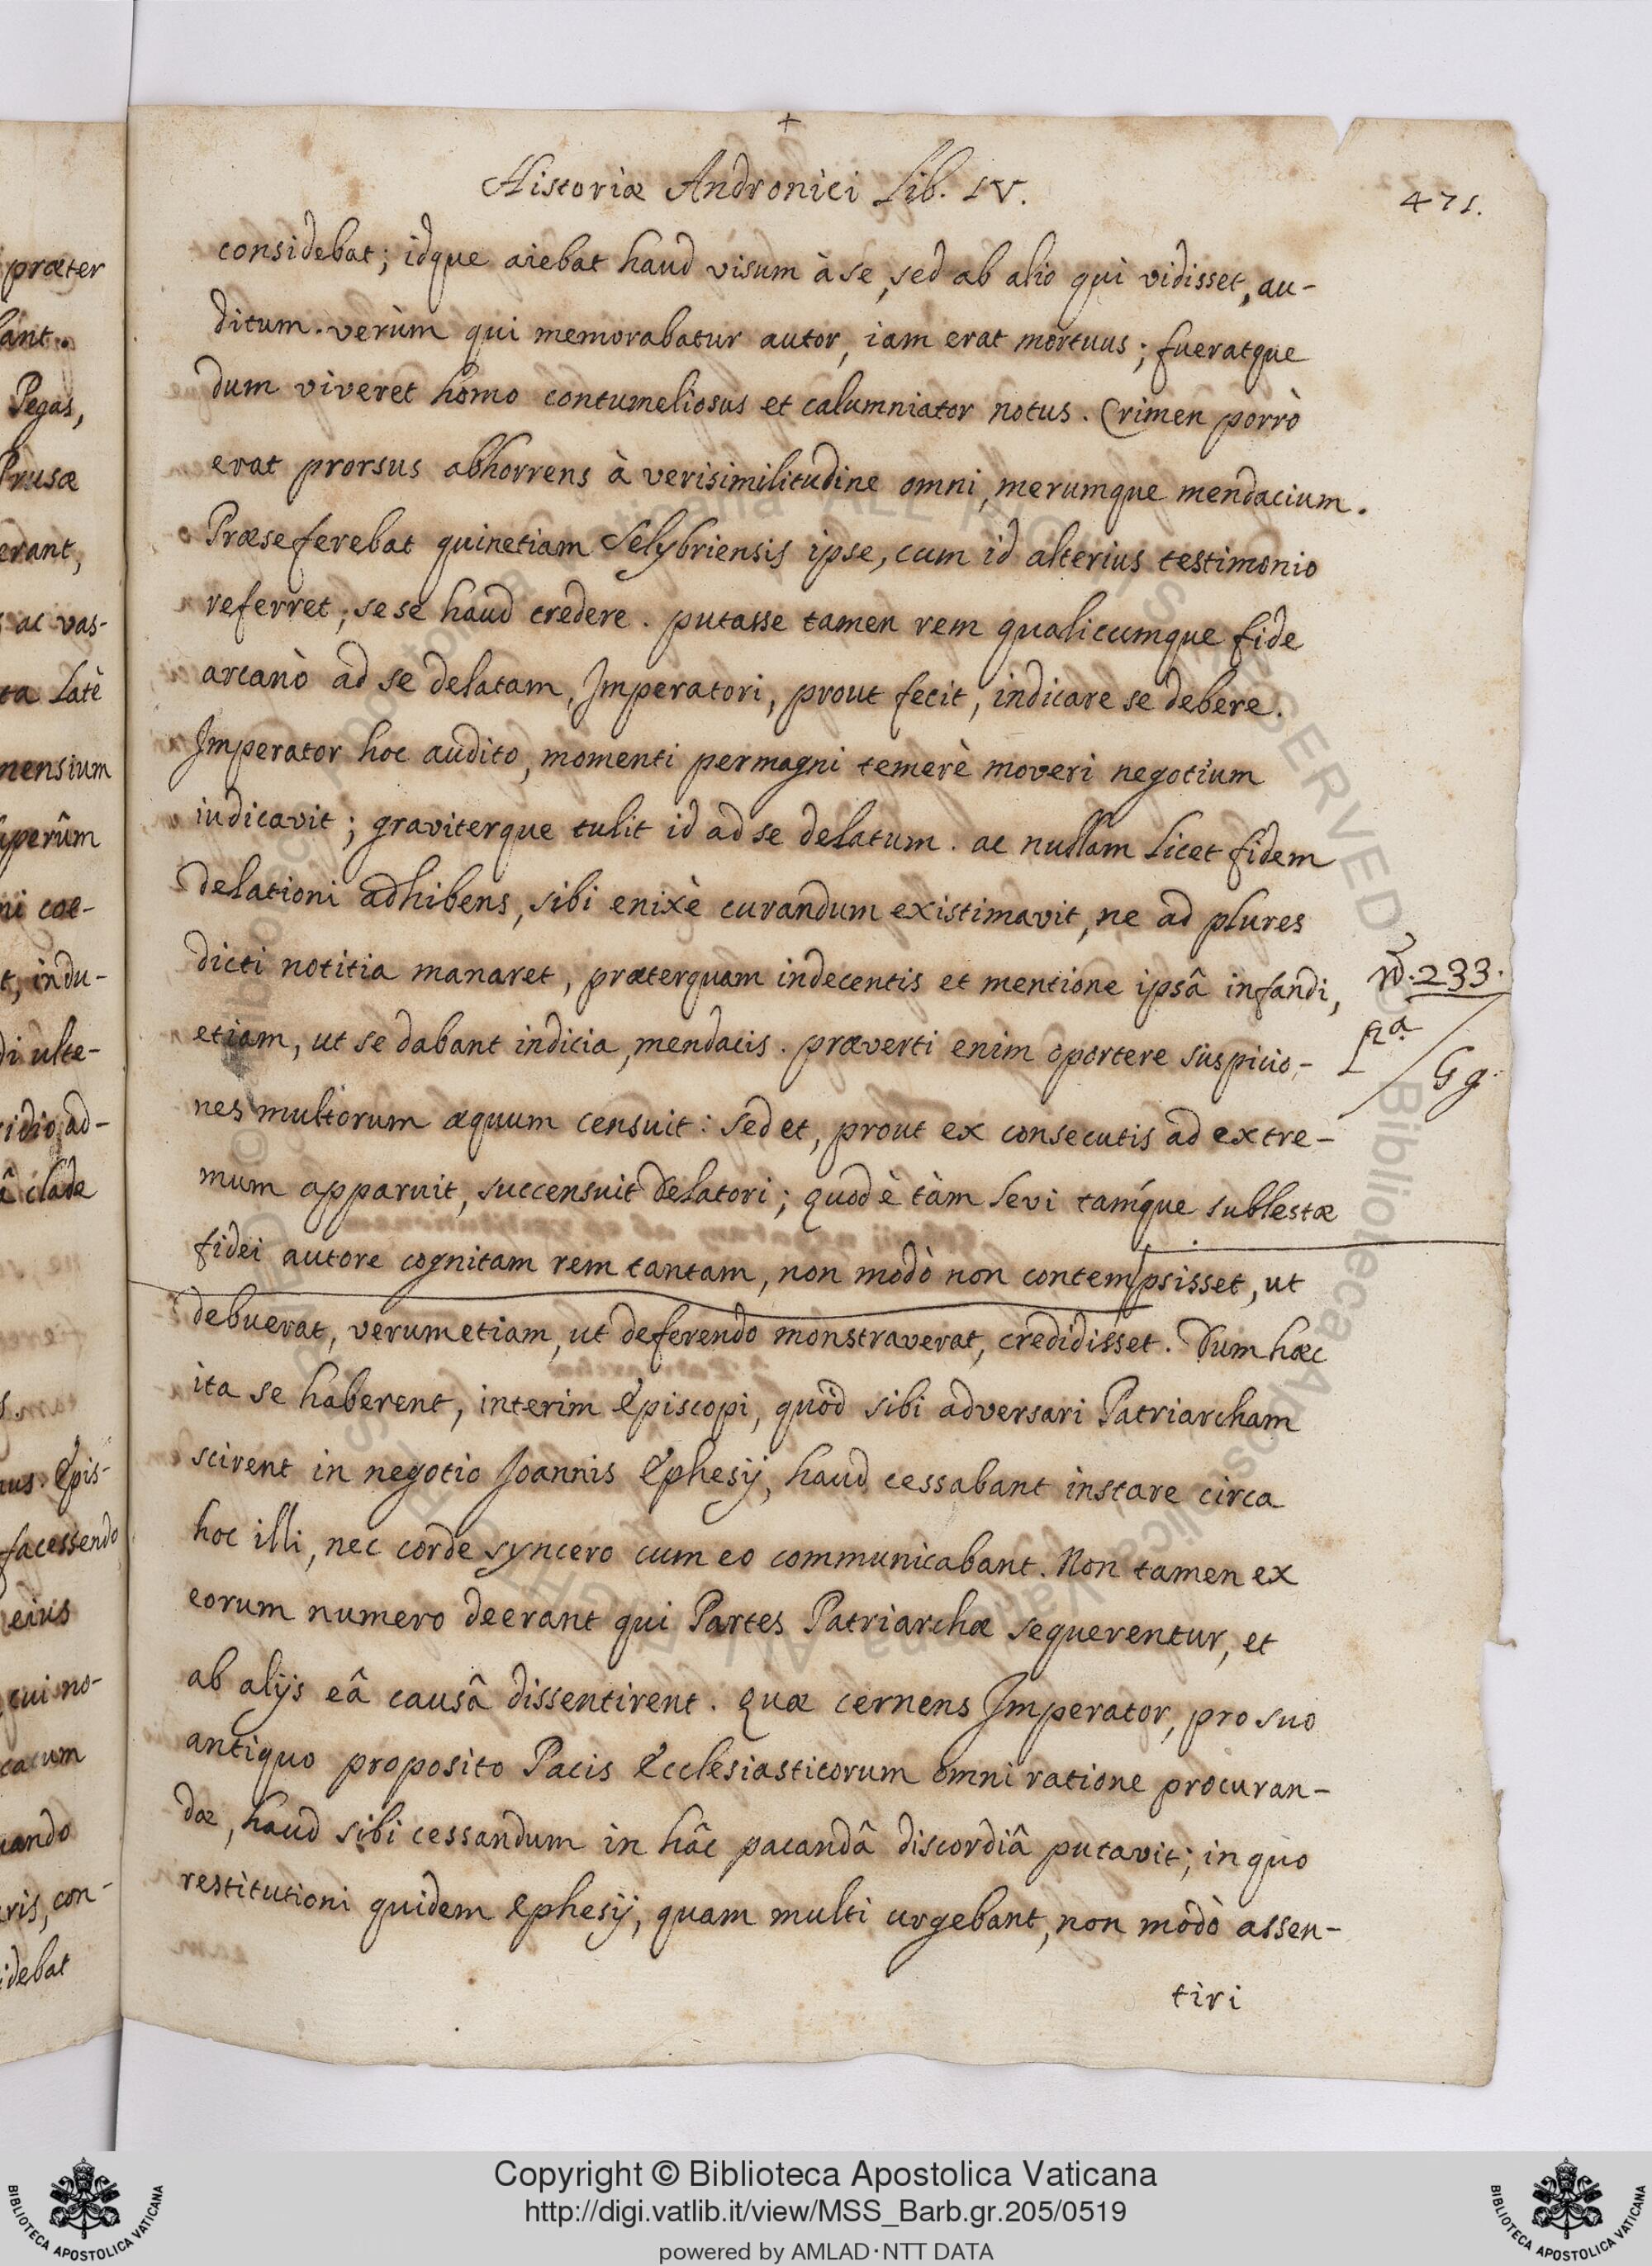 +
Historiæ Andronici Lib. IV.
471.
considebat; idque aiebat haud visum à se, sed ab alio qui vidisset, au-
ditum. verùm qui memorabatur autor, iam erat mortuus; fueratque
dum viveret homo contumeliosus et calumniator notus. Crimen porrò
erat prorsus abhorrens à verisimilitudine omni, merumque mendacium.
Præseferebat quinetiam Selybriensis ipse, cum id alterius testimonio
referret, sese haud credere. putasse tamen rem qualicumque fide
arcanò ad se delatam, Imperatori, prout fecit, indicare se debere.
Imperator hoc audito, momenti permagni temerè moveri negotium
iudicavit; graviterque tulit id ad se delatum. ac nullam licet fidem
delationi adhibens, sibi enixè curandum existimavit, ne ad plures
dicti notitia manaret, præterquam indecentis et mentione ipsâ infandi,
etiam, ut se dabant indicia, mendacis. præverti enim oportere suspicio-
nes multorum æquum censuit: sed et, prout ex consecutis ad extre-
mum apparuit, succensuit delatori; quod è tàm levi tamque sublestæ
fidei autore cognitam rem tantam, non modò non contempsisset, ut
debuerat, verumetiam, ut deferendo monstraverat, credidisset. Dum hæc
ita se haberent, interim Episcopi, quòd sibi adversari Patriarcham
scirent in negotio Joannis Ephesij, haud cessabant instare circa
hoc illi, nec corde syncero cum eo communicabant. Non tamen ex
eorum numero deerant qui Partes Patriarchæ sequerentur, et
ab alijs eâ causâ dissentirent. Quæ cernens Imperator, pro suo
antiquo proposito Pacis Ecclesiasticorum omni ratione procuran-
dæ, haud sibi cessandum in hâc pacandâ discordiâ putavit; in quo
restitutioni quidem Ephesij, quam multi urgebant, non modò assen-
tiri
233.
Gg.
præter
Pegas,
Prusæ
erant,
ac vas-
ta latè
nensium
ni coe-
t, indu-
di ulte-
sidio ad-
â clade
nus Epis-
facessendo
eius
cui no-
catum
uando
ris, con-
idebat
Copyright © Biblioteca Apostolica Vaticana
http://digi.vatlib.it/view/MSS_Barb.gr.205/0519
powered by AMLAD·NTT DATA
BIBLIOTECA APOSTOLICA VATICANA
BIBLIOTECA APOSTOLICA VATICANA